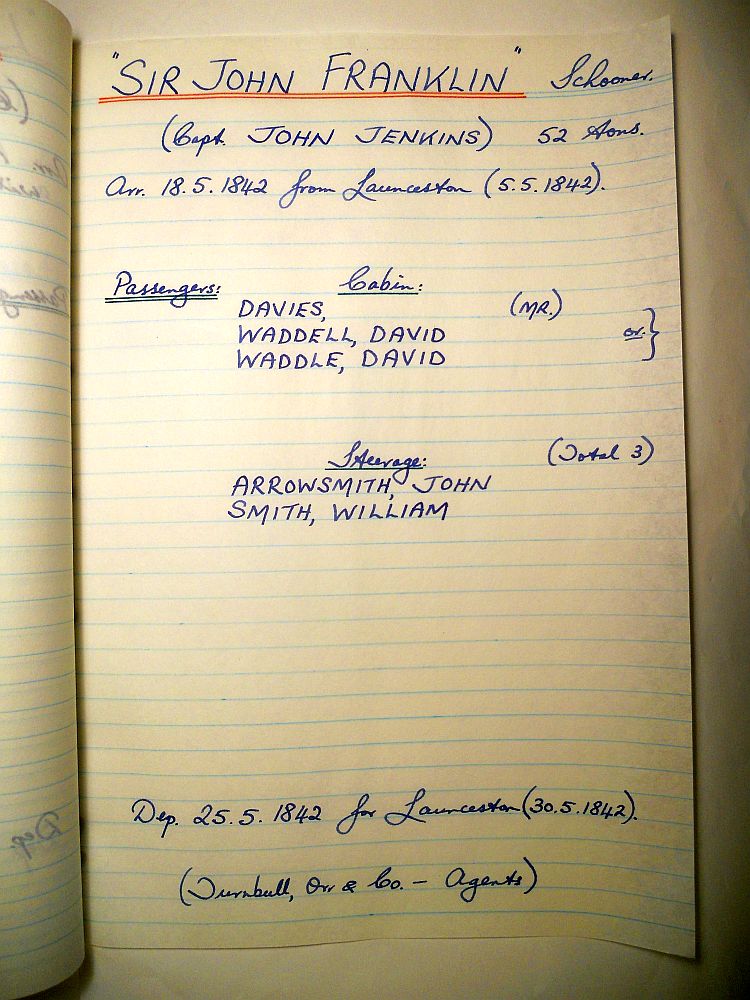 "SIR JOHN FRANKLIN" Schooner.
(Capt. JOHN JENKINS) 52 tons.
Arr. 18.5.1842 from Launceston (5.5.1842).
Passengers: Cabin:
DAVIES, (MR.)
WADDELL, DAVID
or }
WADDLE, DAVID
Steerage: (Total 3)
ARROWSMITH, JOHN
SMITH, WILLIAM
Dep. 25.5.1842 for Launceston (30.5.1842).
(Turnbull, Orr & Co. - Agents)
Dep